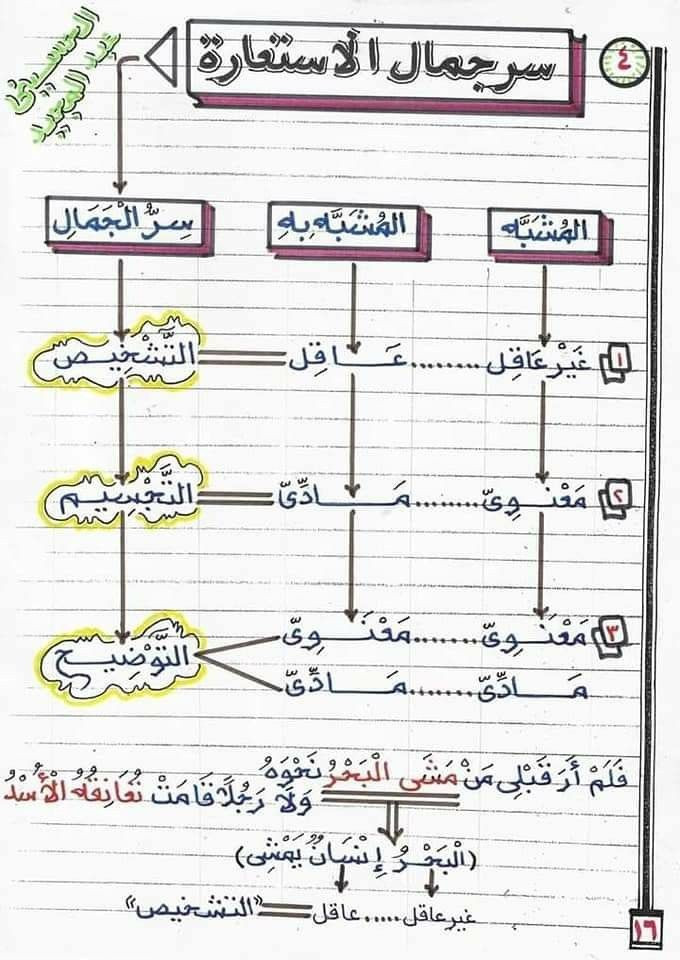 ٤
سر جمال الاستعارة
الحسيني
عبد المجيد
المُشَبَّه
المُشَبَّه بِهِ
سِرُّ الْجَمَالِ
١ غَيْر عَاقِل ........ عَـــاقِل = التَّشْخِيص
٢ مَعْنَــوِىّ ........ مَـــادِّىّ = التَّجْسِيم
٣ مَعْنَــوِىّ ........ مَعْنَــوِىّ
التَّوْضِيح
مَـــادِّىّ ........ مَـــادِّىّ
فَلَمْ أَرَ قَبْلِى مَنْ مَشَى الْبَحْرُ نَحْوَهُ
وَلَا رَجُلًا قَامَتْ تُعَانِقُهُ الْأُسْدُ
(الْبَحْـرُ إِنْسَانٌ يَمْشِى)
غير عاقل ..... عاقل = "التشخيص"
١٦